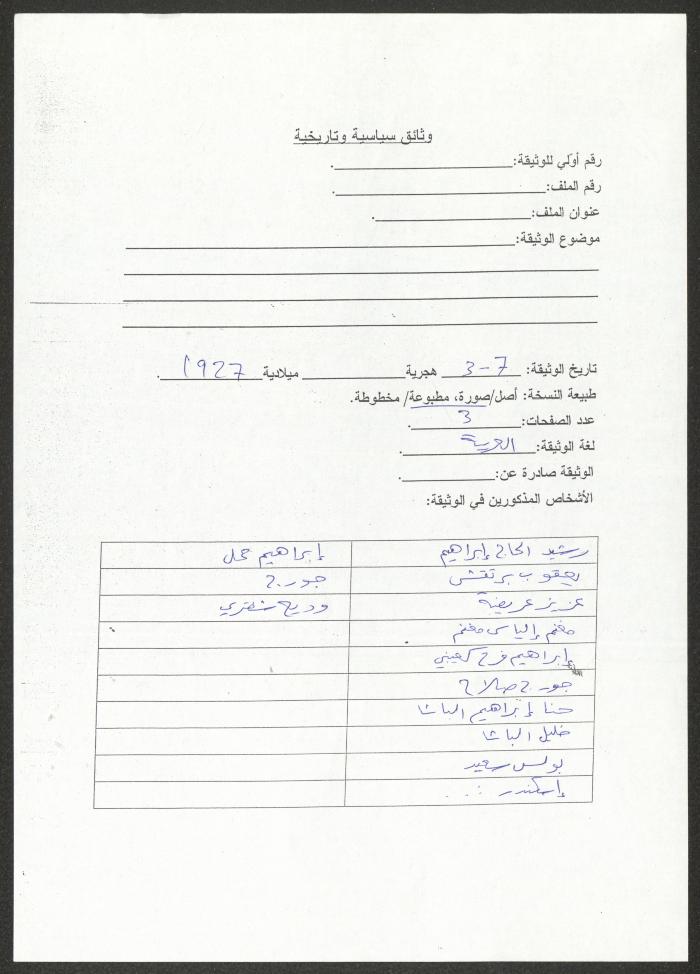 وثائق سياسية وتاريخية
رقم أولي للوثيقة:.
رقم الملف:.
عنوان الملف:.
موضوع الوثيقة:
تاريخ الوثيقة: 7-3 هجرية ميلادية 1927.
طبيعة النسخة: أصل/صورة، مطبوعة/ مخطوطة.
عدد الصفحات: 3.
لغة الوثيقة: العربية.
الوثيقة صادرة عن:.
الأشخاص المذكورين في الوثيقة:
رشيد الحاج إبراهيم إبراهيم
يعقوب برتقش جورج
عزيز عريضة وديع شقري
مغنم إلياس مغنم
إبراهيم فرح كعيبني
جورج صلاح
حنا إبراهيم الباشا
خليل الباشا
بولس سعيد
إسكندر ...